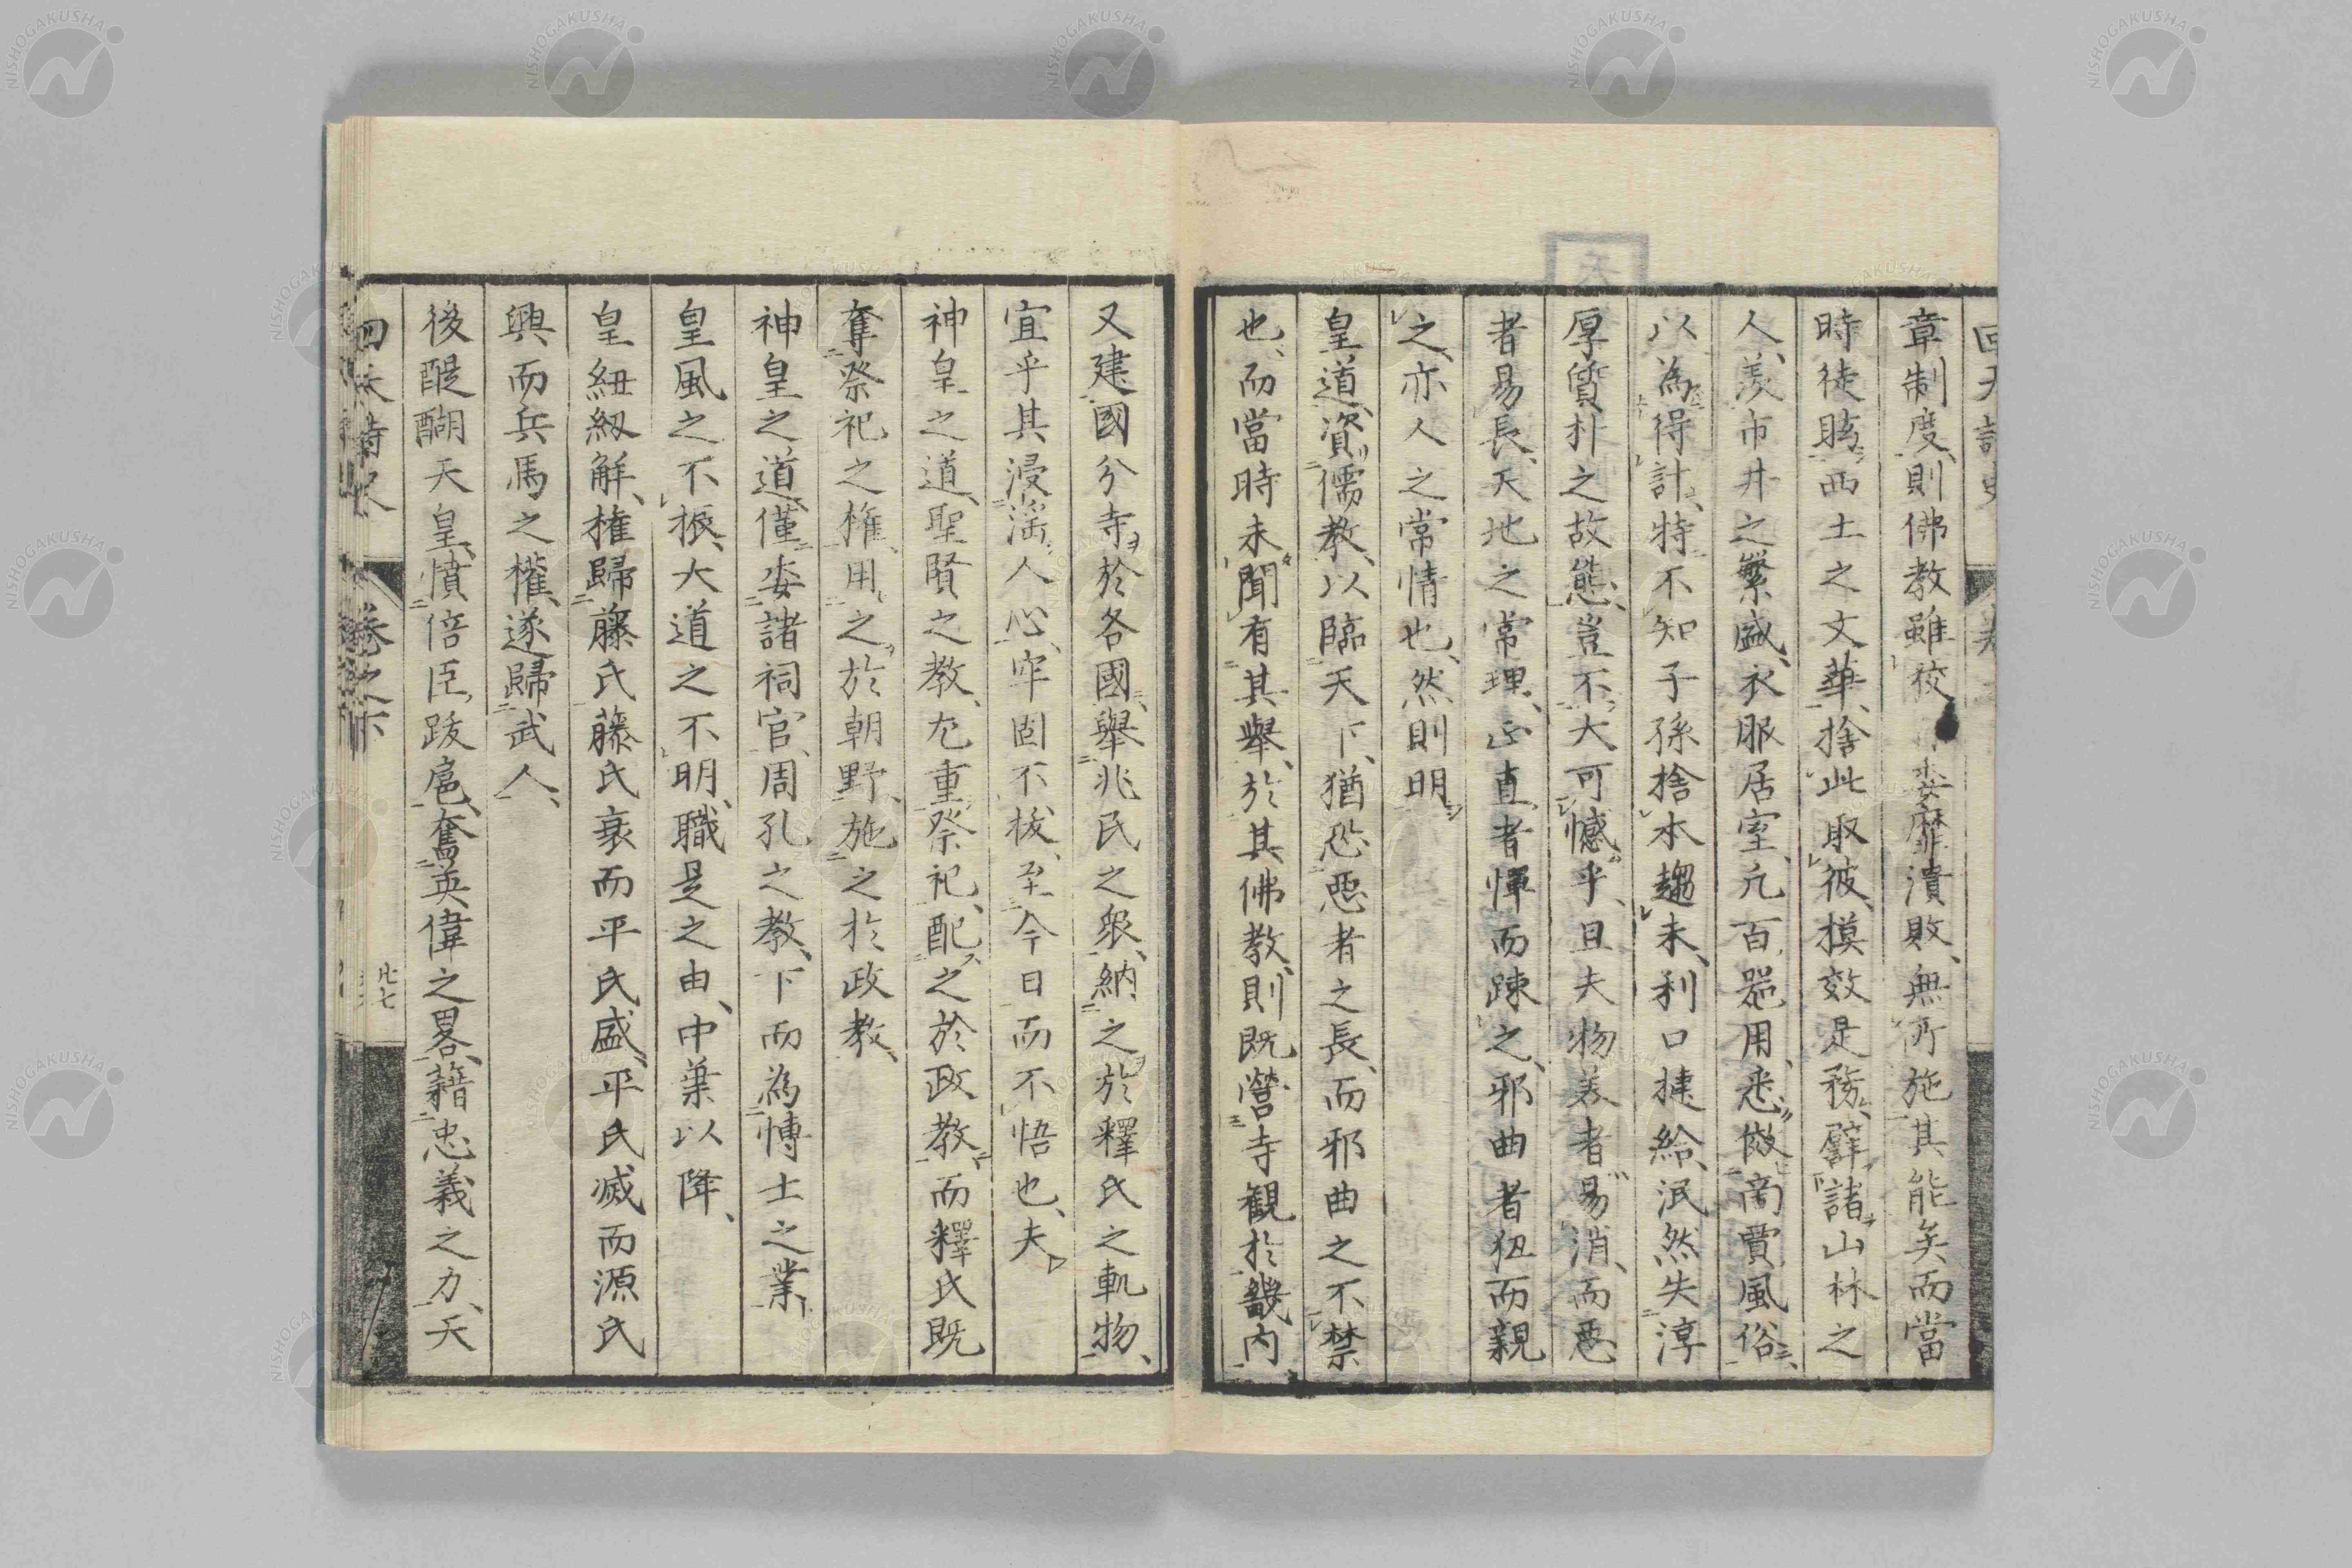 章制度、則佛教雖狡委靡潰敗、無所施其能矣、而當
時徒眩西土之文華、捨此取彼、摸效是務、譬諸山林之
人、羨市井之繁盛、衣服居室、凡百器用、悉倣商賈風俗、
以為得計、特不知子孫捨本趨末、利口捷給、泯然失淳
厚質朴之故態、豈不大可憾乎、且夫物美者易消、而惡
者易長、天地之常理、正直者憚而踈之、邪曲者狃而親
之、亦人之常情也、然則明
皇道、資儒教、以臨天下、猶恐惡者之長、而邪曲之不禁
也、而當時未聞有其舉、於其佛教、則既營寺觀於畿內、
又建國分寺於各國、舉兆民之衆、納之於釋氏之軌物、
宜乎其浸淫人心、牢固不拔、至今日而不悟也、夫
神皇之道、聖賢之教、尤重祭祀、配之於政教、而釋氏既
奪祭祀之権、用之於朝野、施之於政教、
神皇之道、僅委諸祠官、周孔之教、下而為博士之業、
皇風之不振、大道之不明、職是之由、中葉以降、
皇紐紉解、権歸藤氏、藤氏衰而平氏盛、平氏滅而源氏
興、而兵馬之權、遂歸武人、
後醍醐天皇、憤倍臣跋扈、奮英偉之畧、藉忠義之力、天
卷之下
廿七
NISHOGAKUSHA